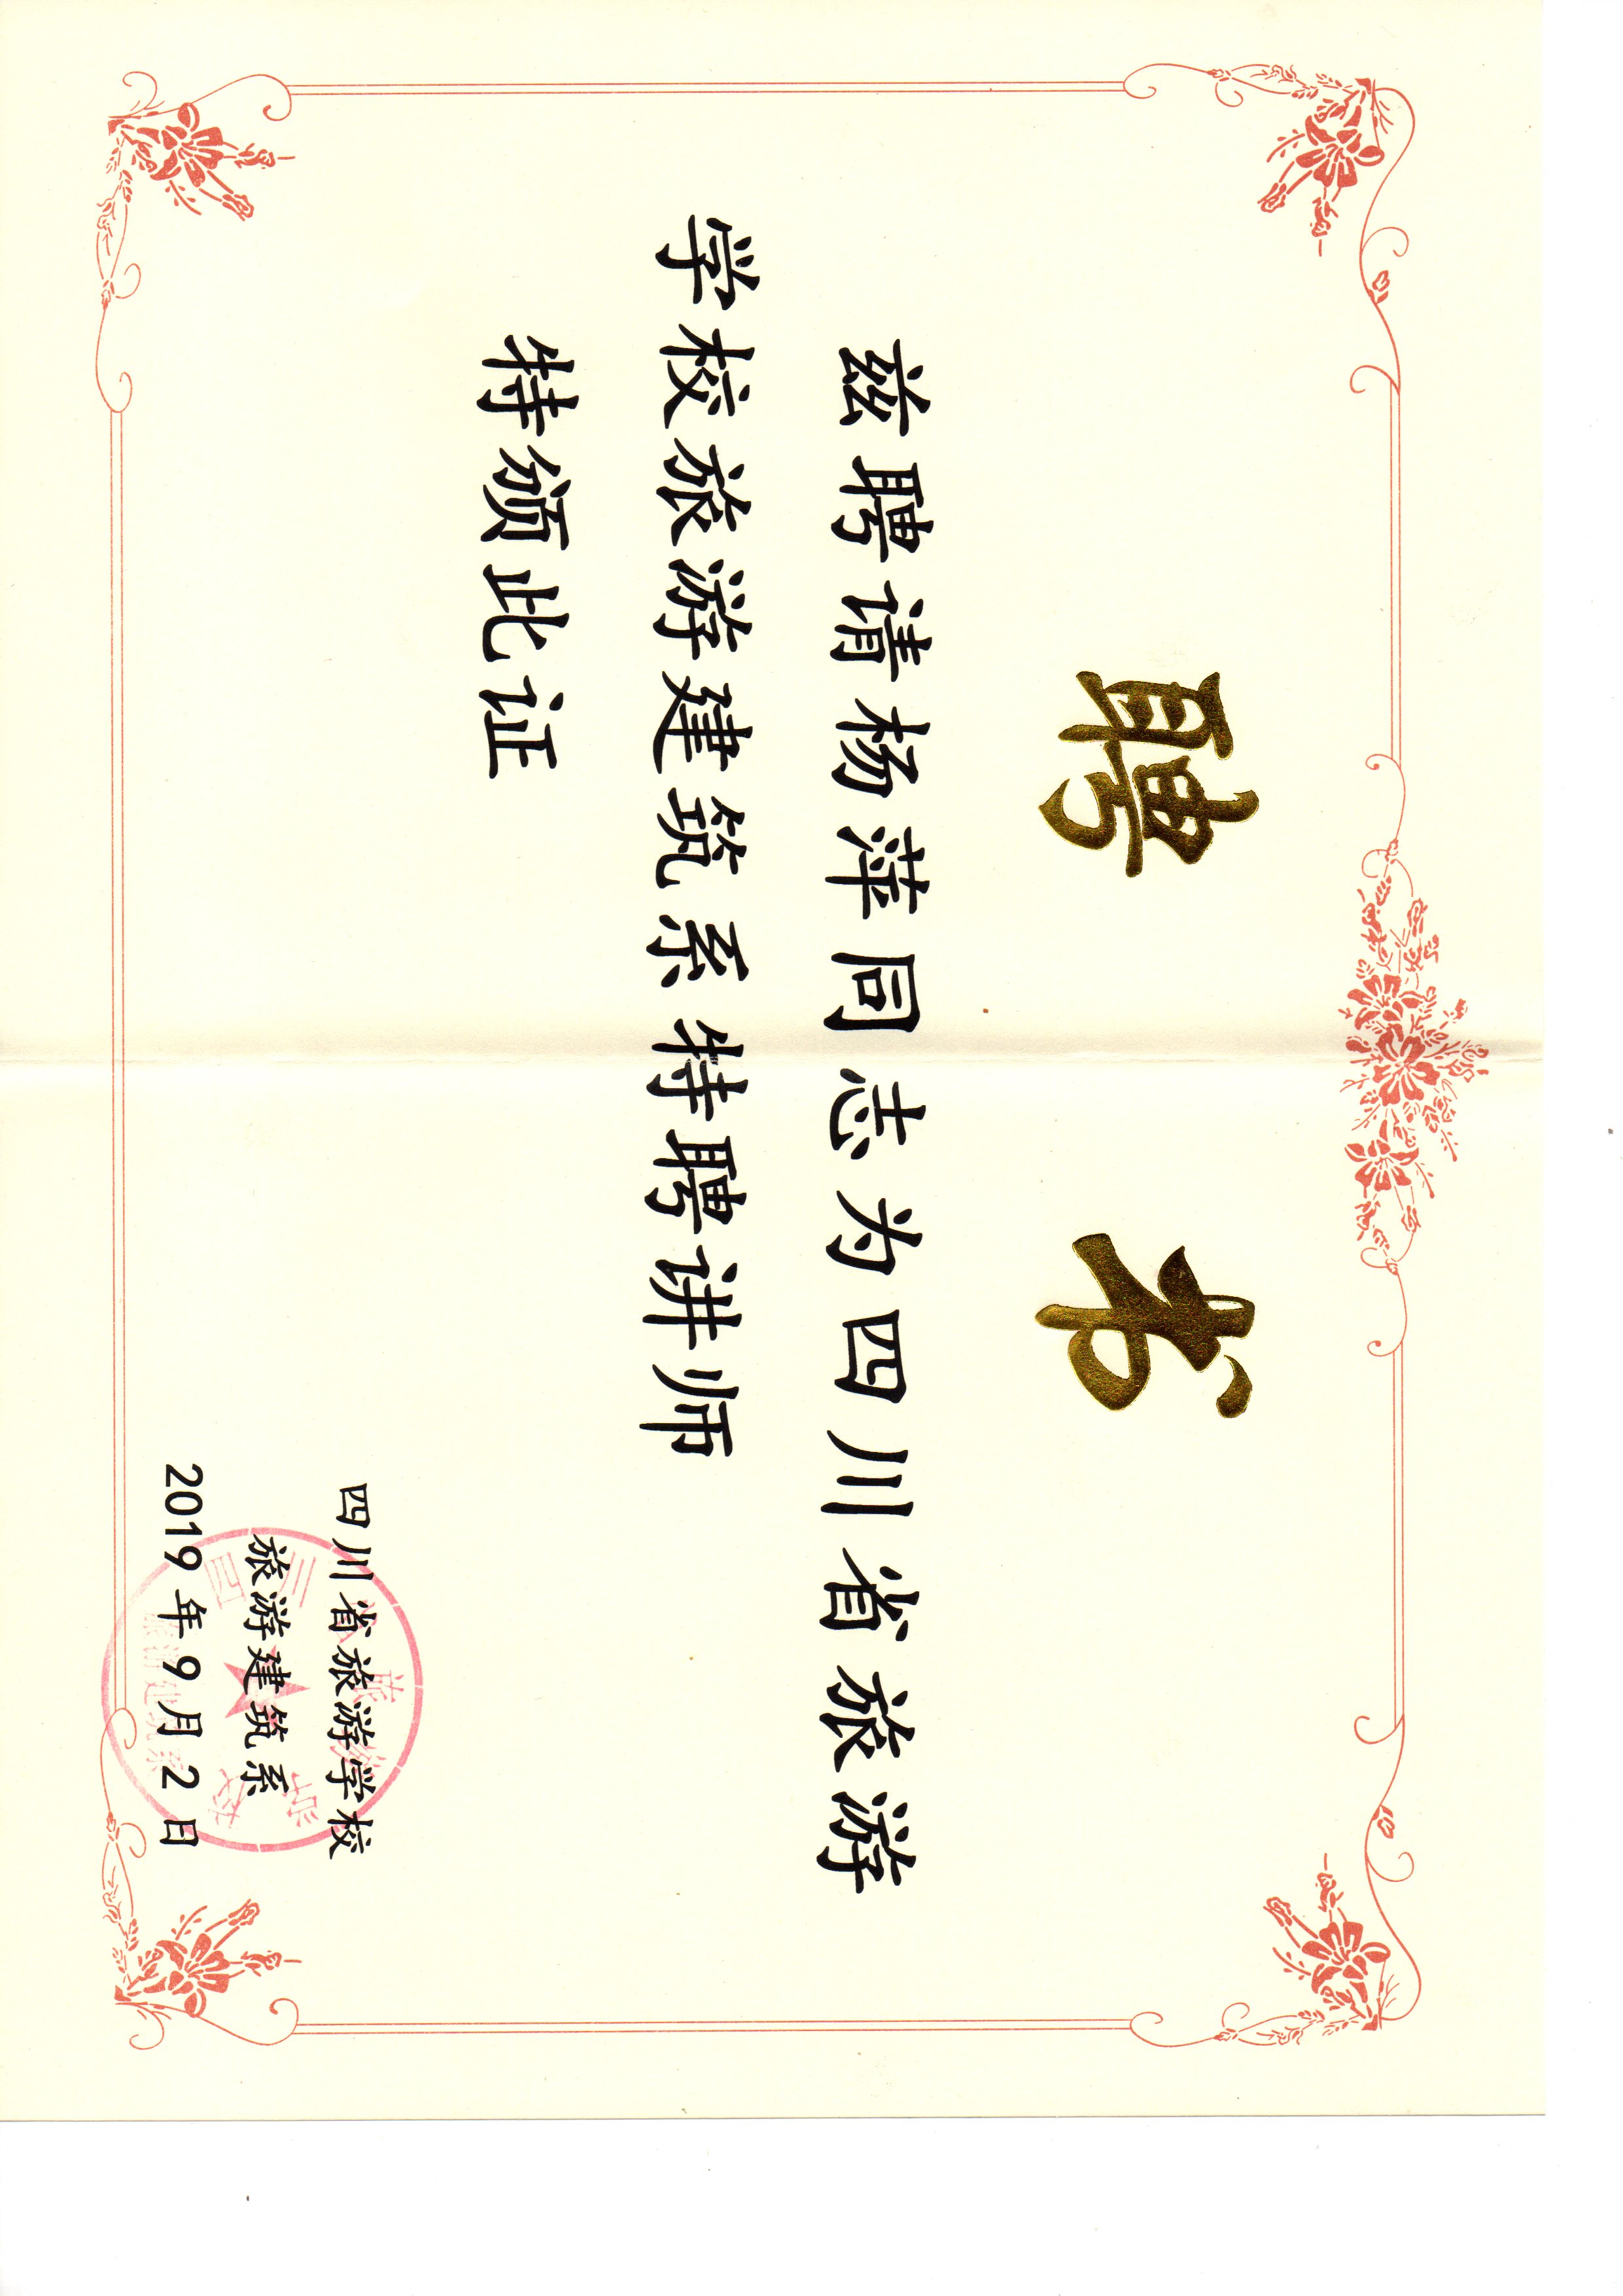 聘书
兹聘请杨萍同志为四川省旅游
学校旅游建筑系特聘讲师
特颁此证
四川省旅游学校
旅游建筑系
2019年9月2日